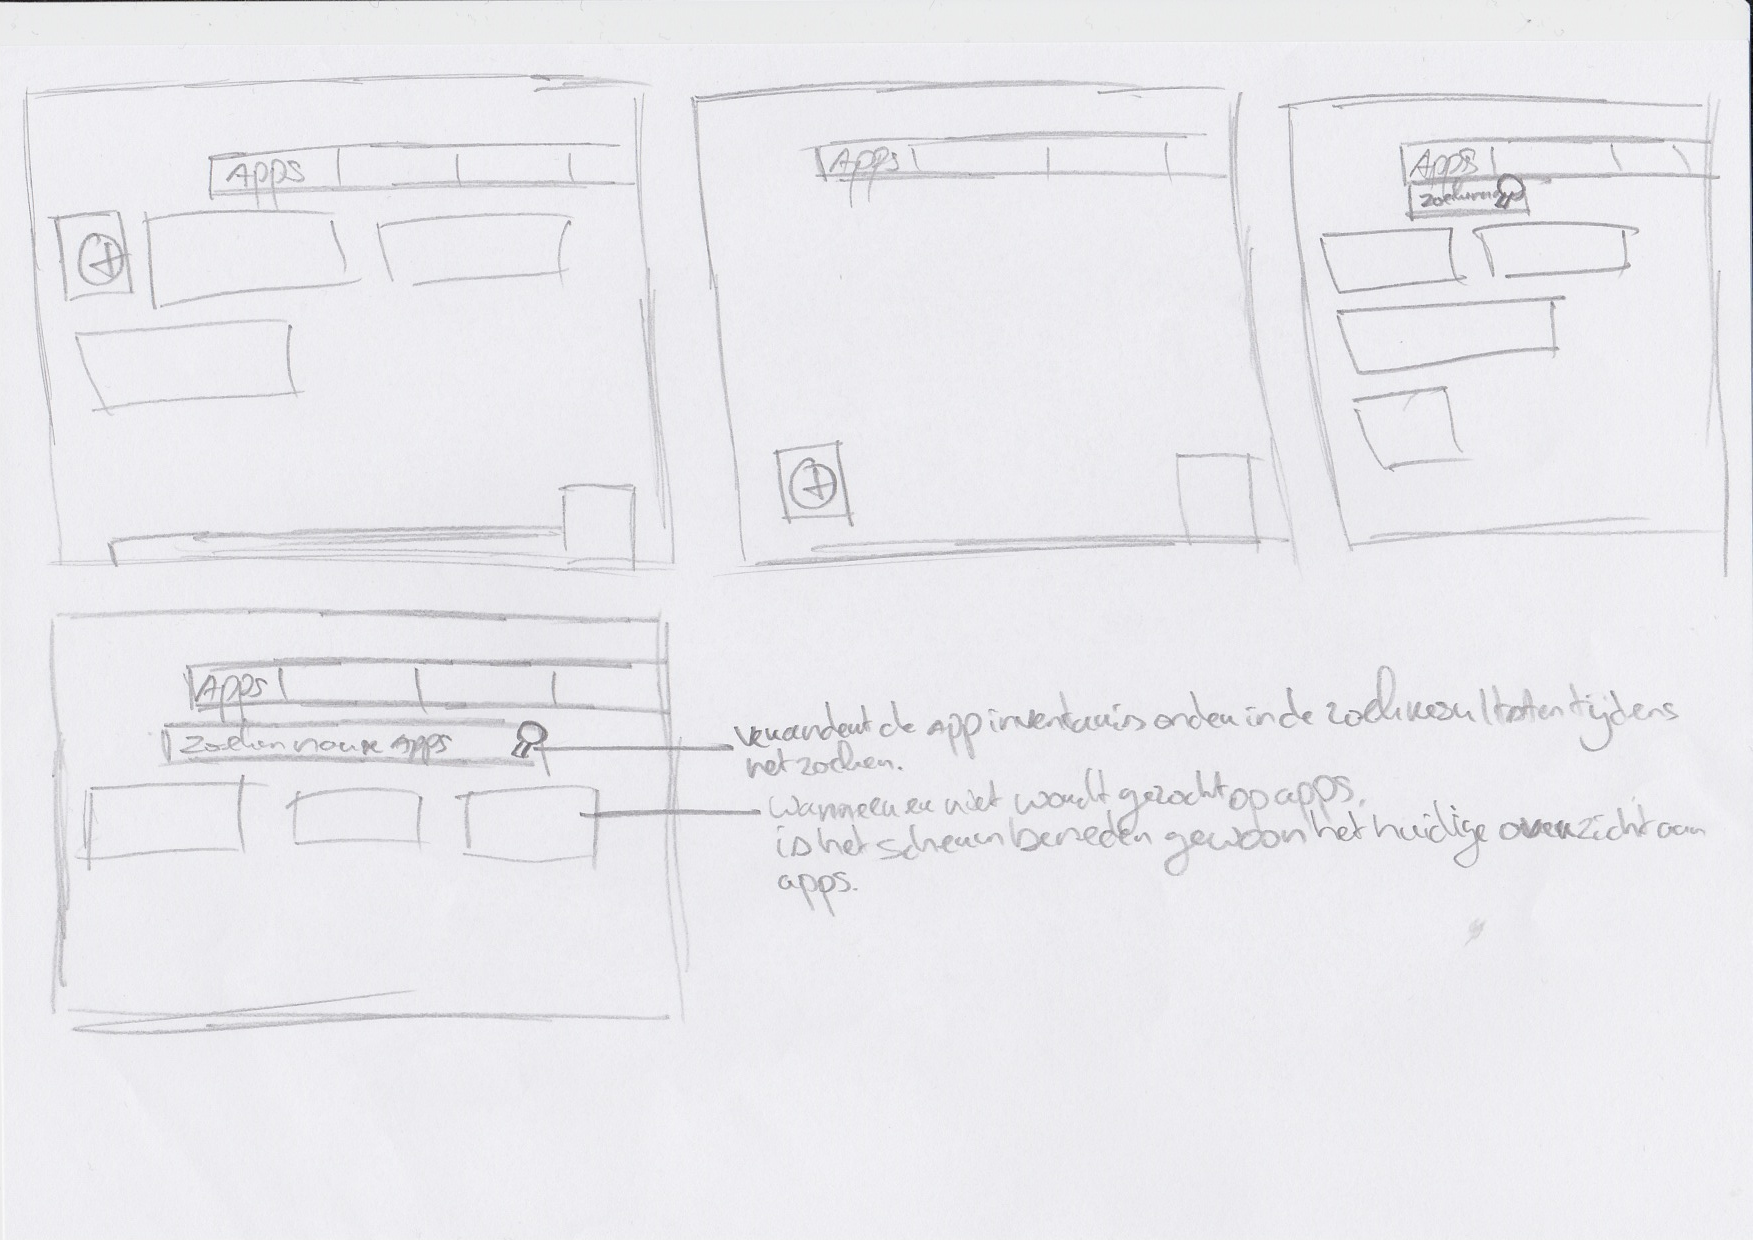 Apps
Apps
Apps
Zoeken
Apps
Zoeken nouwe Apps
Verandert de App inventaris onder in de zoekresultaten tijdens
het zoeken.
Wanneer er niet wordt gezocht op apps,
is het scherm beneden gewoon het huidige overzicht aan
apps.